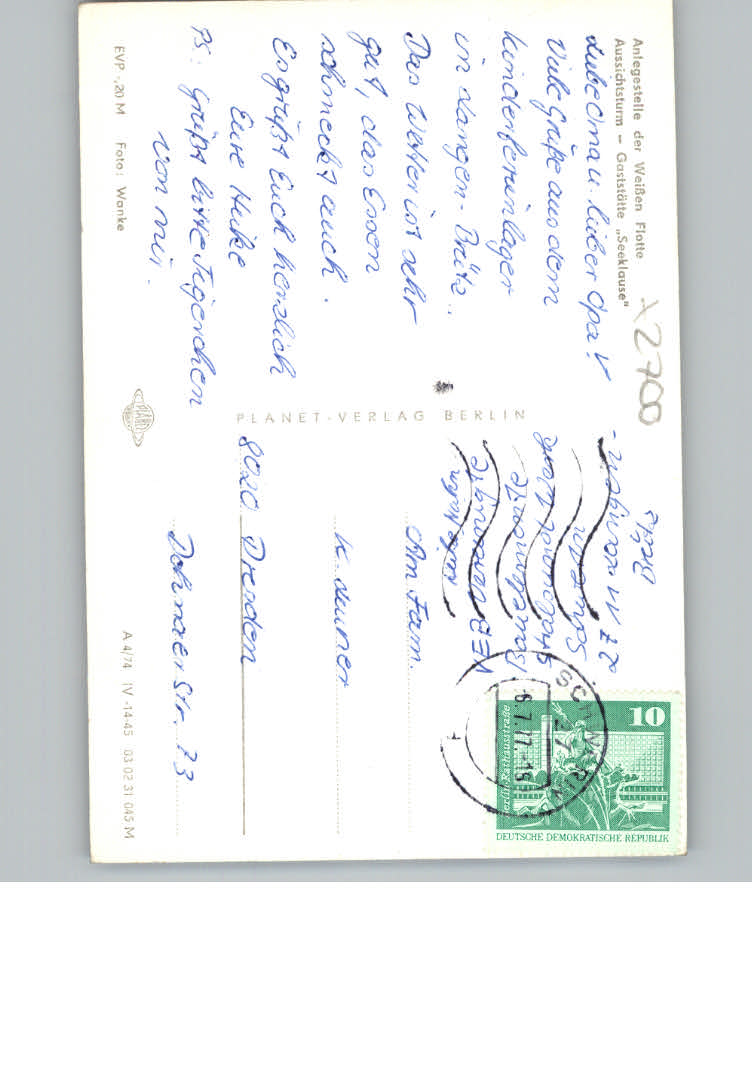 Anlegestelle der Weißen Flotte
Aussichtsturm – Gaststätte „Seeklause"
Liebe Oma u. lieber Opa!
Viele Grüße aus dem
Kinderferienlager
in Langen-Brütz.
Das Wetter ist sehr
gut, das Essen
schmeckt auch.
Es grüßt Euch herzlich
Eure Heike
PS: Grüßt bitte
von mir.
EVP -,20 M Foto: Wanke
x2700
PLANET-VERLAG BERLIN
PLANET
27 SCHWERIN
-6.7.77-18
10
Berlin·Rathausstraße
DEUTSCHE DEMOKRATISCHE REPUBLIK
VEB
An Fam.
K.
8020 Dresden
Dohnaer Str. 73
A 4/74 IV-14-45 03 02 31 045 M